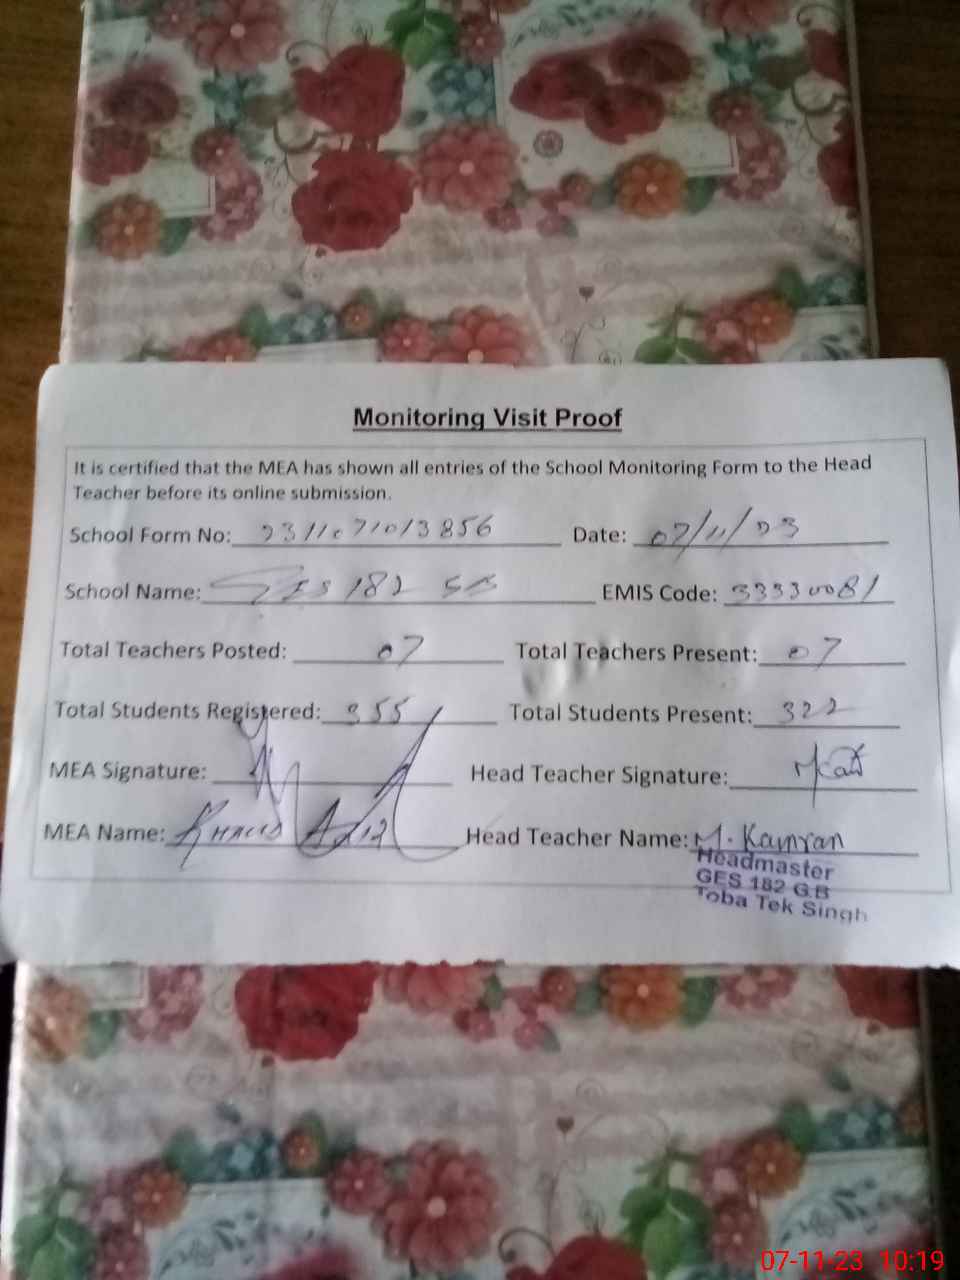 Monitoring Visit Proof
It is certified that the MEA has shown all entries of the School Monitoring Form to the Head
Teacher before its online submission.
School Form No: 2311071013856 Date: 07/11/23
School Name: GES 182 GB EMIS Code: 33330081
Total Teachers Posted: 07 Total Teachers Present: 07
Total Students Registered: 355 Total Students Present: 322
MEA Signature: Head Teacher Signature:
MEA Name: Head Teacher Name: M. Kamran
Headmaster
GES 182 G.B
Toba Tek Singh
07-11-23 10:19